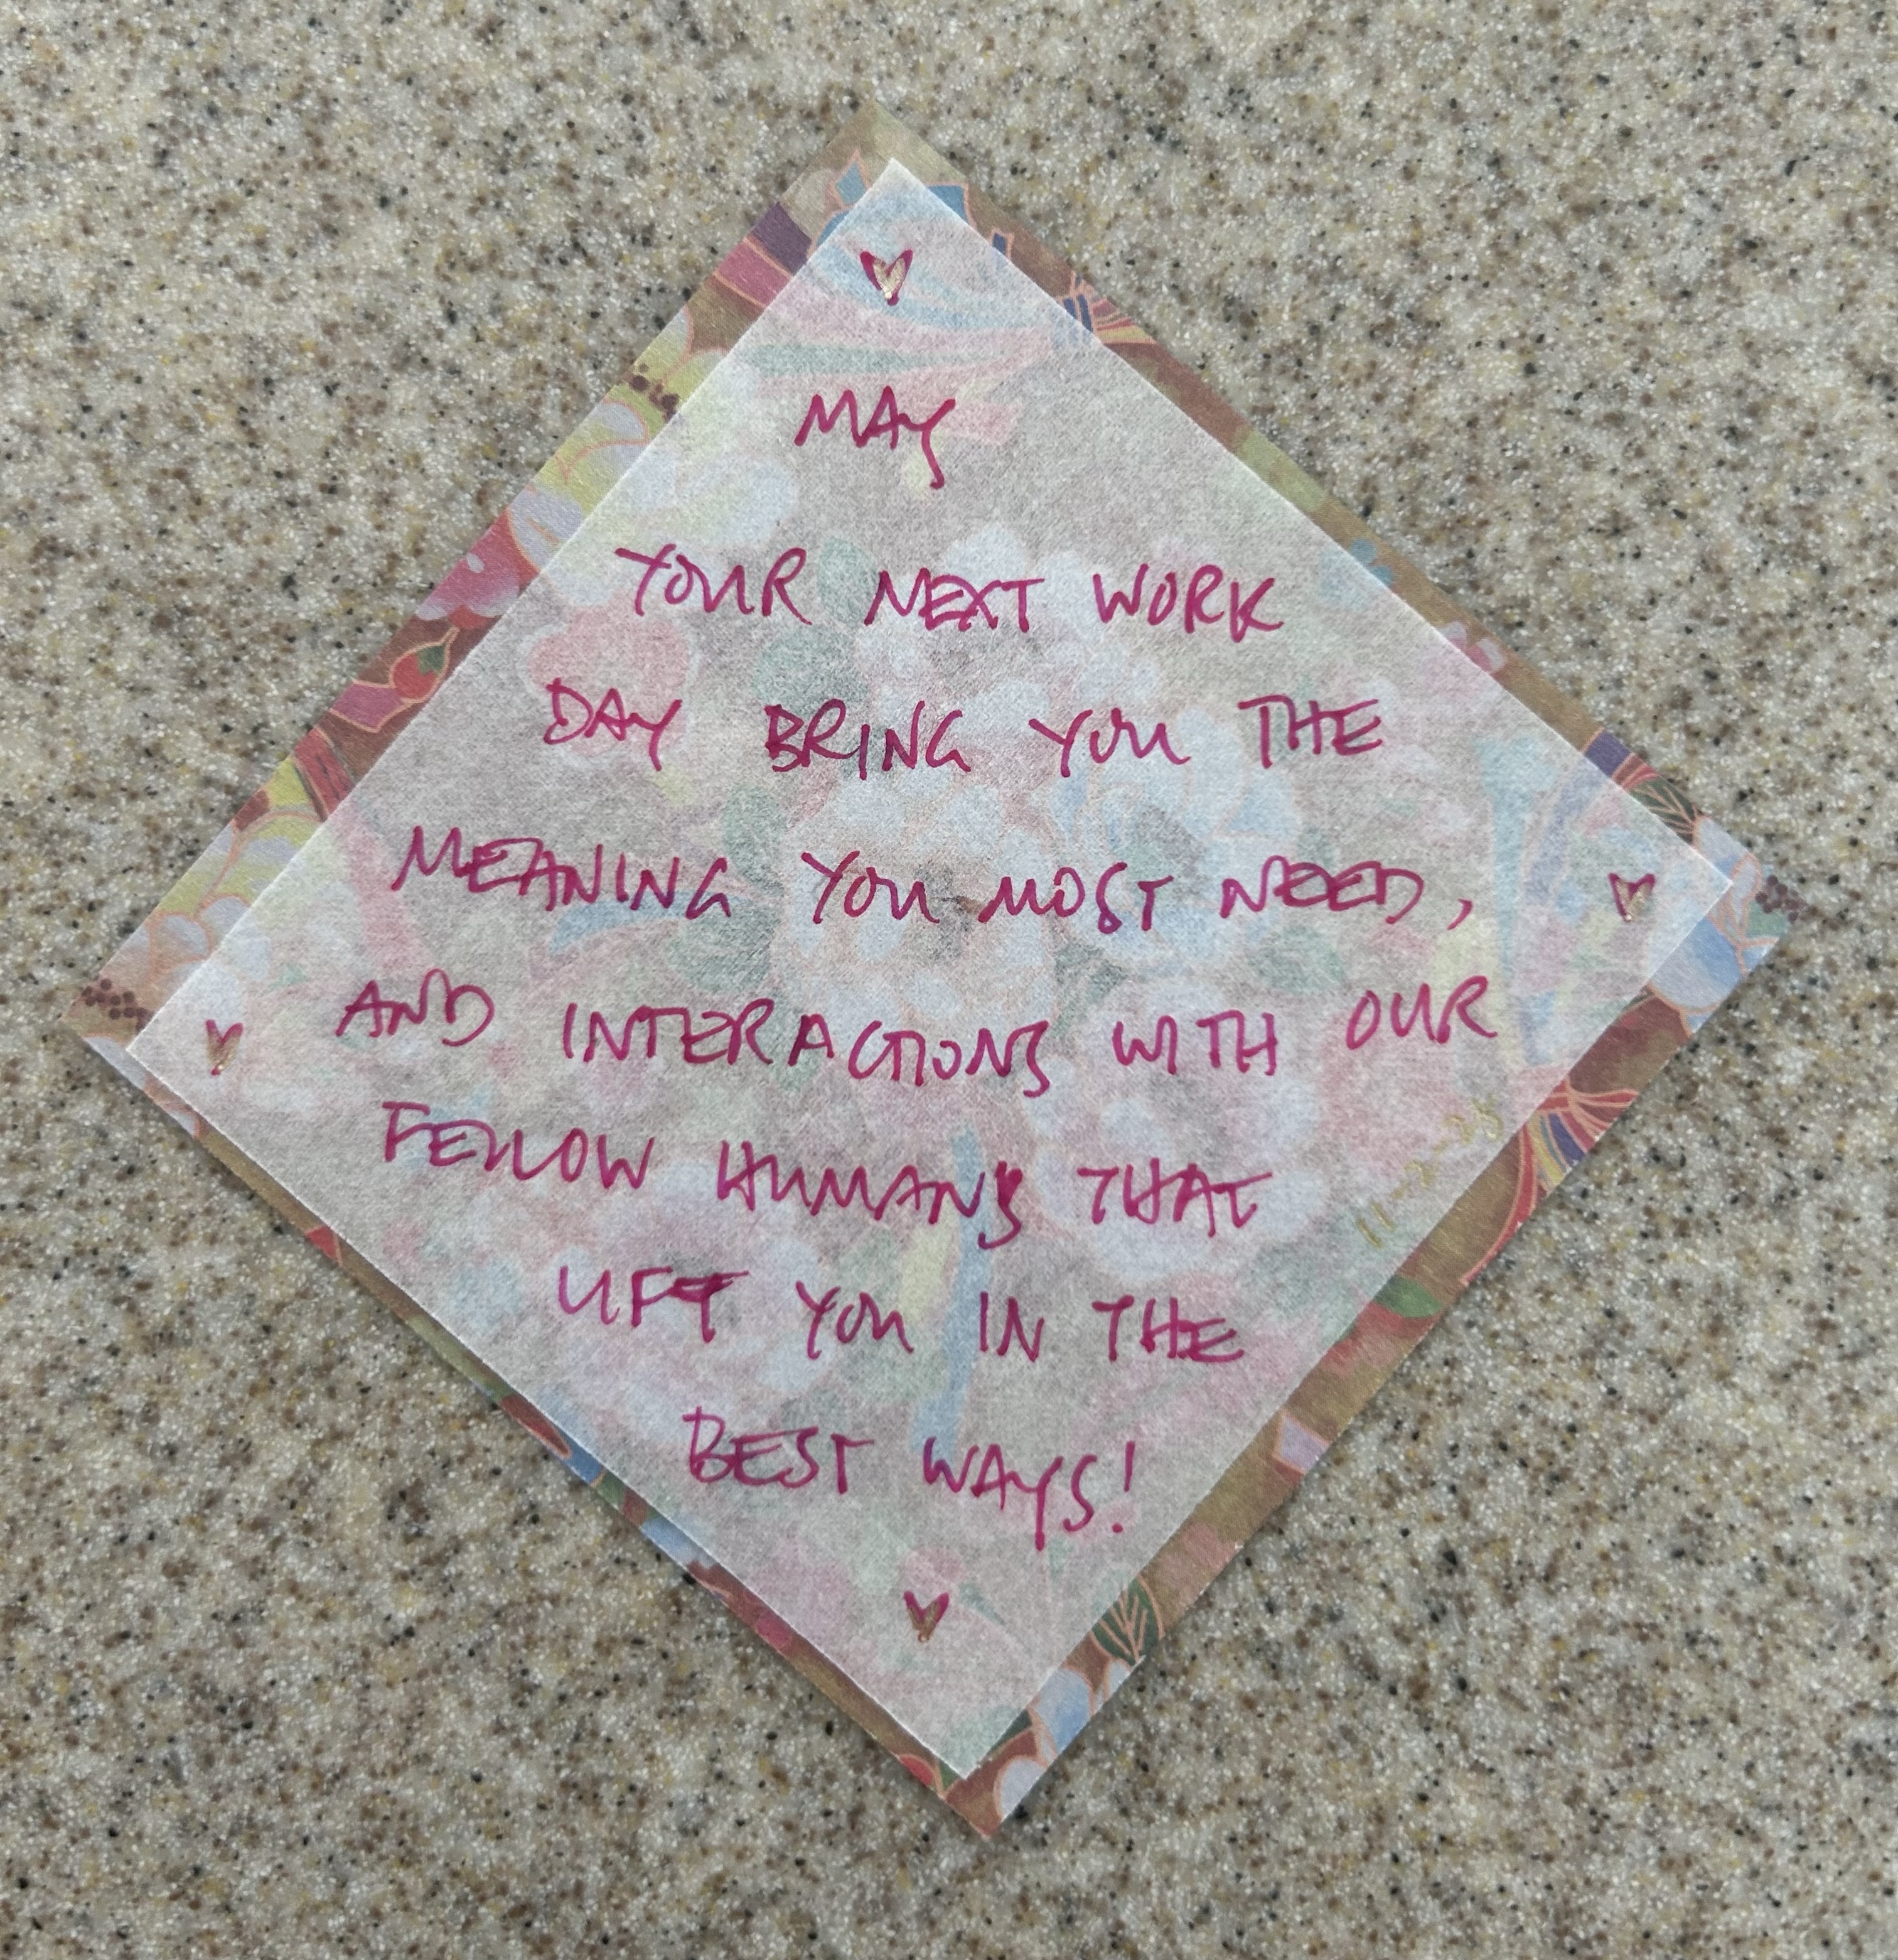 MAY
YOUR NEXT WORK
DAY BRING YOU THE
MEANING YOU MOST NEED,
AND INTERACTIONS WITH OUR
FELLOW HUMANS THAT
LIFT YOU IN THE
BEST WAYS!
11-2-25